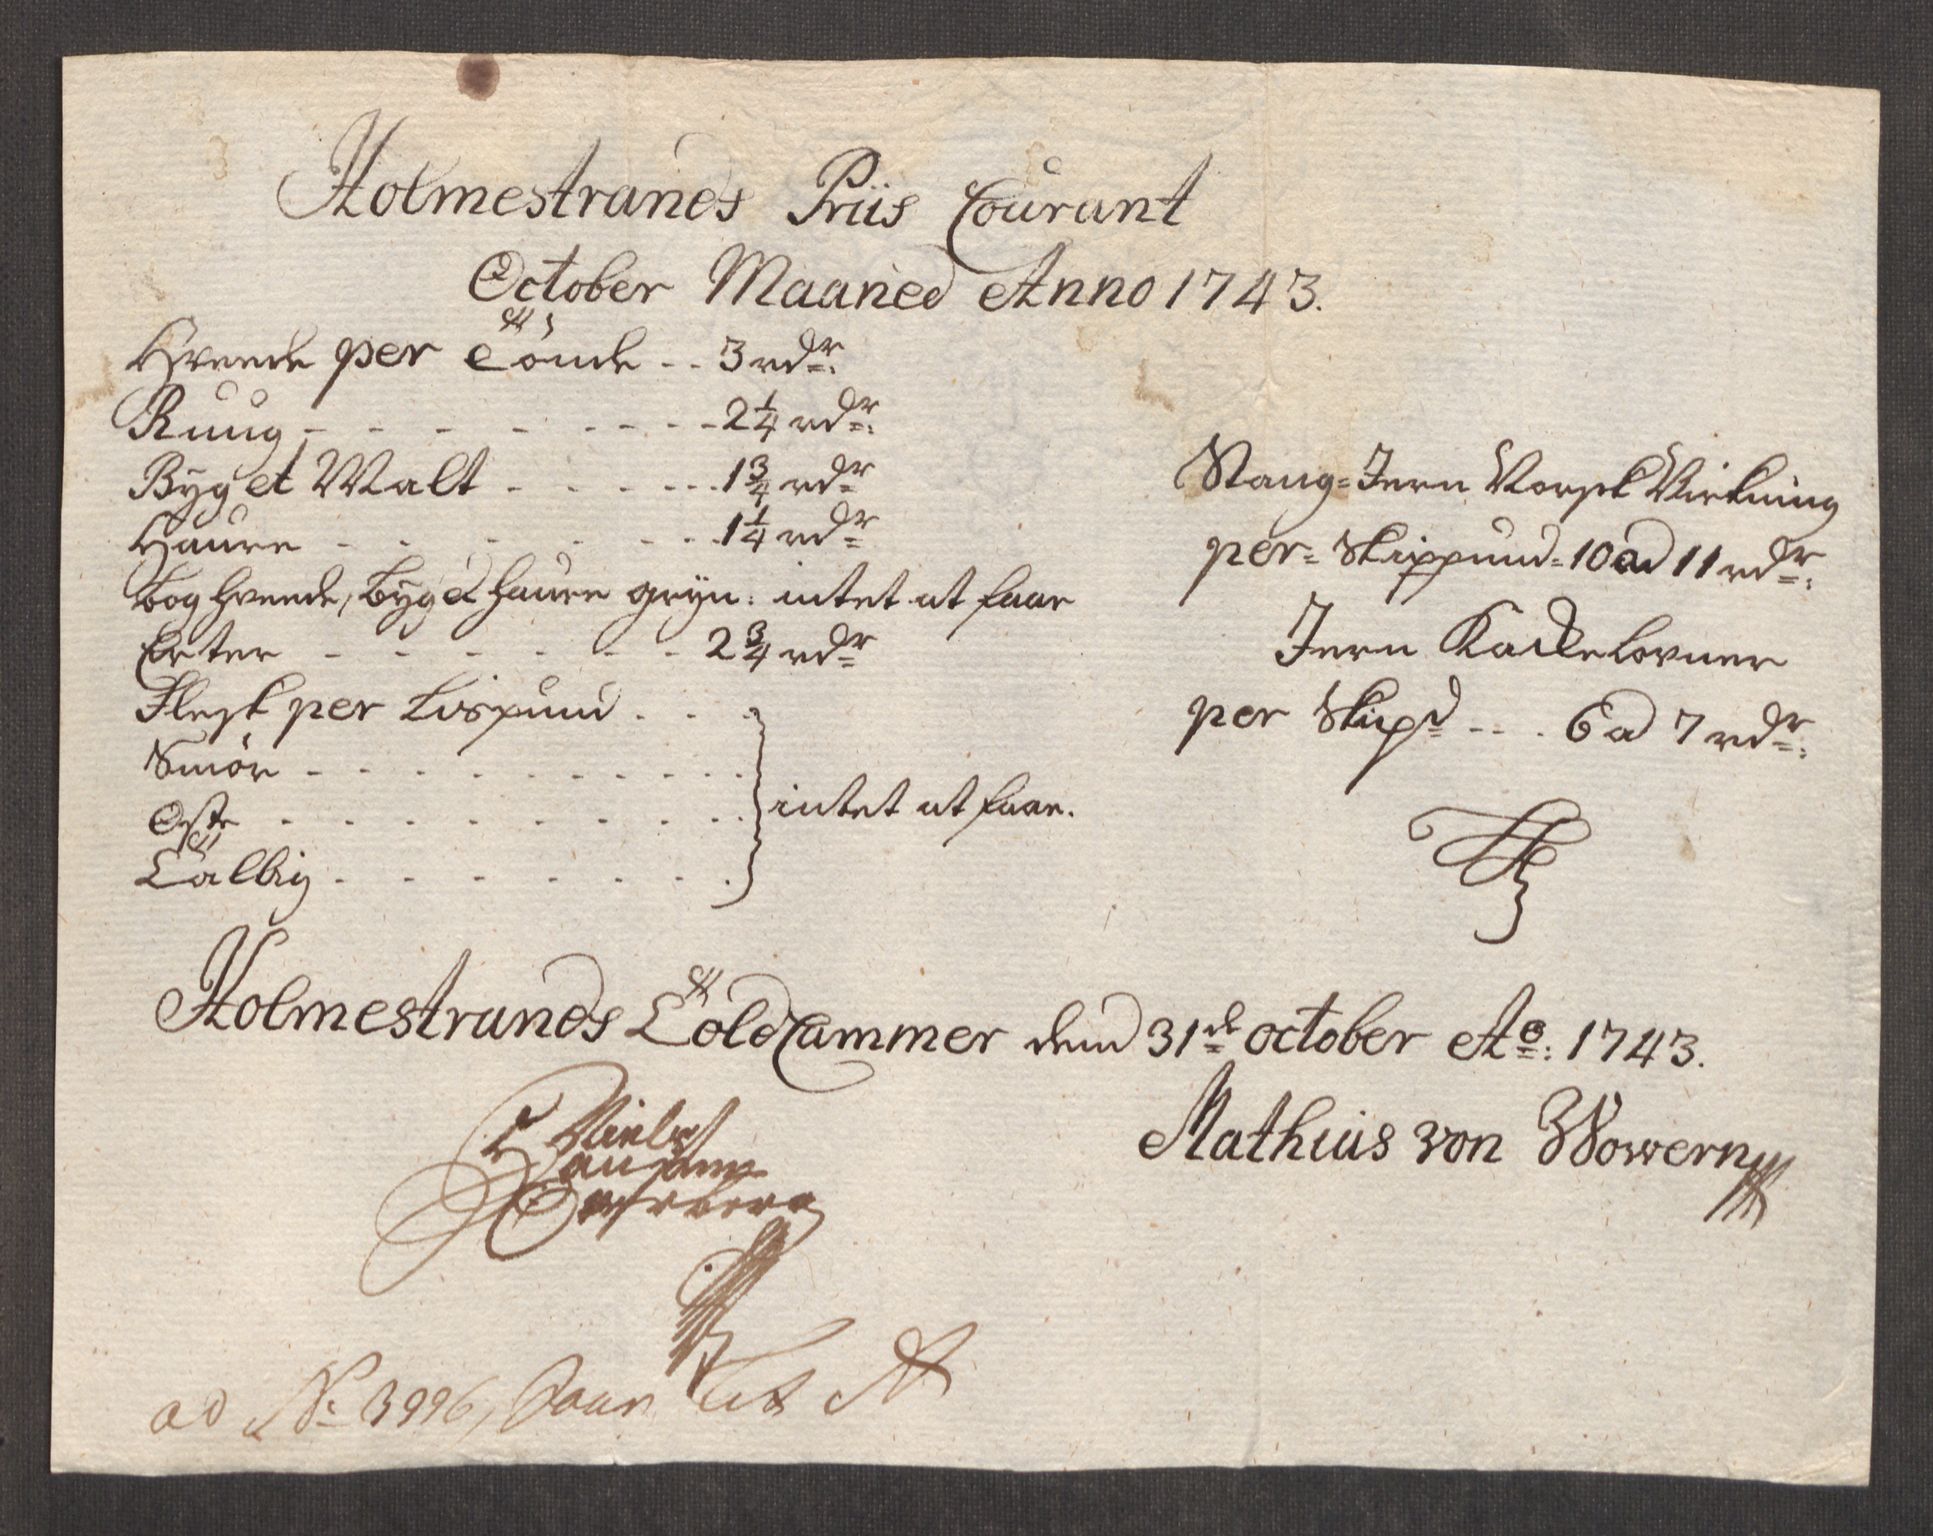 Holmestrands Priis Courant
October Maaned Anno 1743.
Hveede per Tönde .. 3 rdr:
Ruug - - - - - - - - 2 1/4 rdr:
Byg et Malt - - - - - - 1 3/4 rdr
Haure - - - - - - - 1 1/4 rdr
Boghveede, Byg & haure gryn: intet at faae
Erter - - - - - - 2 3/4 rdr
Flesk per Lispund . . .
Smör - - - - - - - - - -
Oste - - - - - - - - - - intet at faae.
Tallig - - - - - - - -
Stang=Jern Norsk Virkning
per= Skippund= 10 ad 11 rdr:
Jern Kackelovner
per Skipd - - . 6 ad 7 rdr:
Holmestrands ToldCammer dend 31de October Ao: 1743.
Niels
Mathias von Wowern
ad No 3996, Litr A